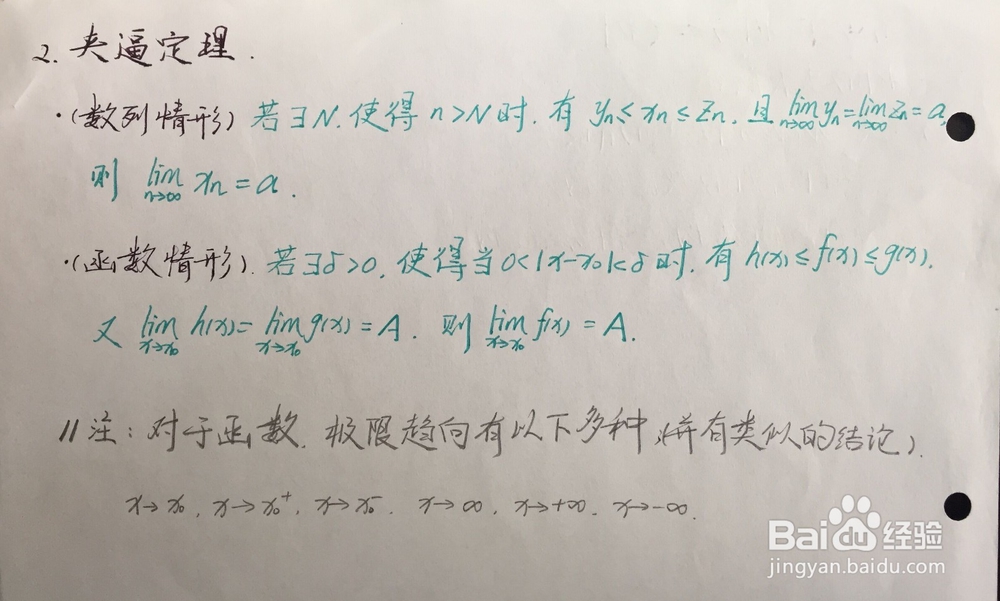 2. 夹逼定理.
·(数列情形) 若∃N, 使得 n>N时, 有 yₙ≤xₙ≤zₙ, 且 lim_{n→∞} yₙ = lim_{n→∞} zₙ = a,
则 lim_{n→∞} xₙ = a.
·(函数情形). 若∃δ>0, 使得当 0<|x-x₀|<δ时, 有 h(x)≤f(x)≤g(x).
又 lim_{x→x₀} h(x) = lim_{x→x₀} g(x) = A. 则 lim_{x→x₀} f(x) = A.
// 注: 对于函数, 极限趋向有以下多种 (并有类似的结论).
x→x₀, x→x₀⁺, x→x₀⁻, x→∞, x→+∞, x→-∞.
Baidu经验
jingyan.baidu.com